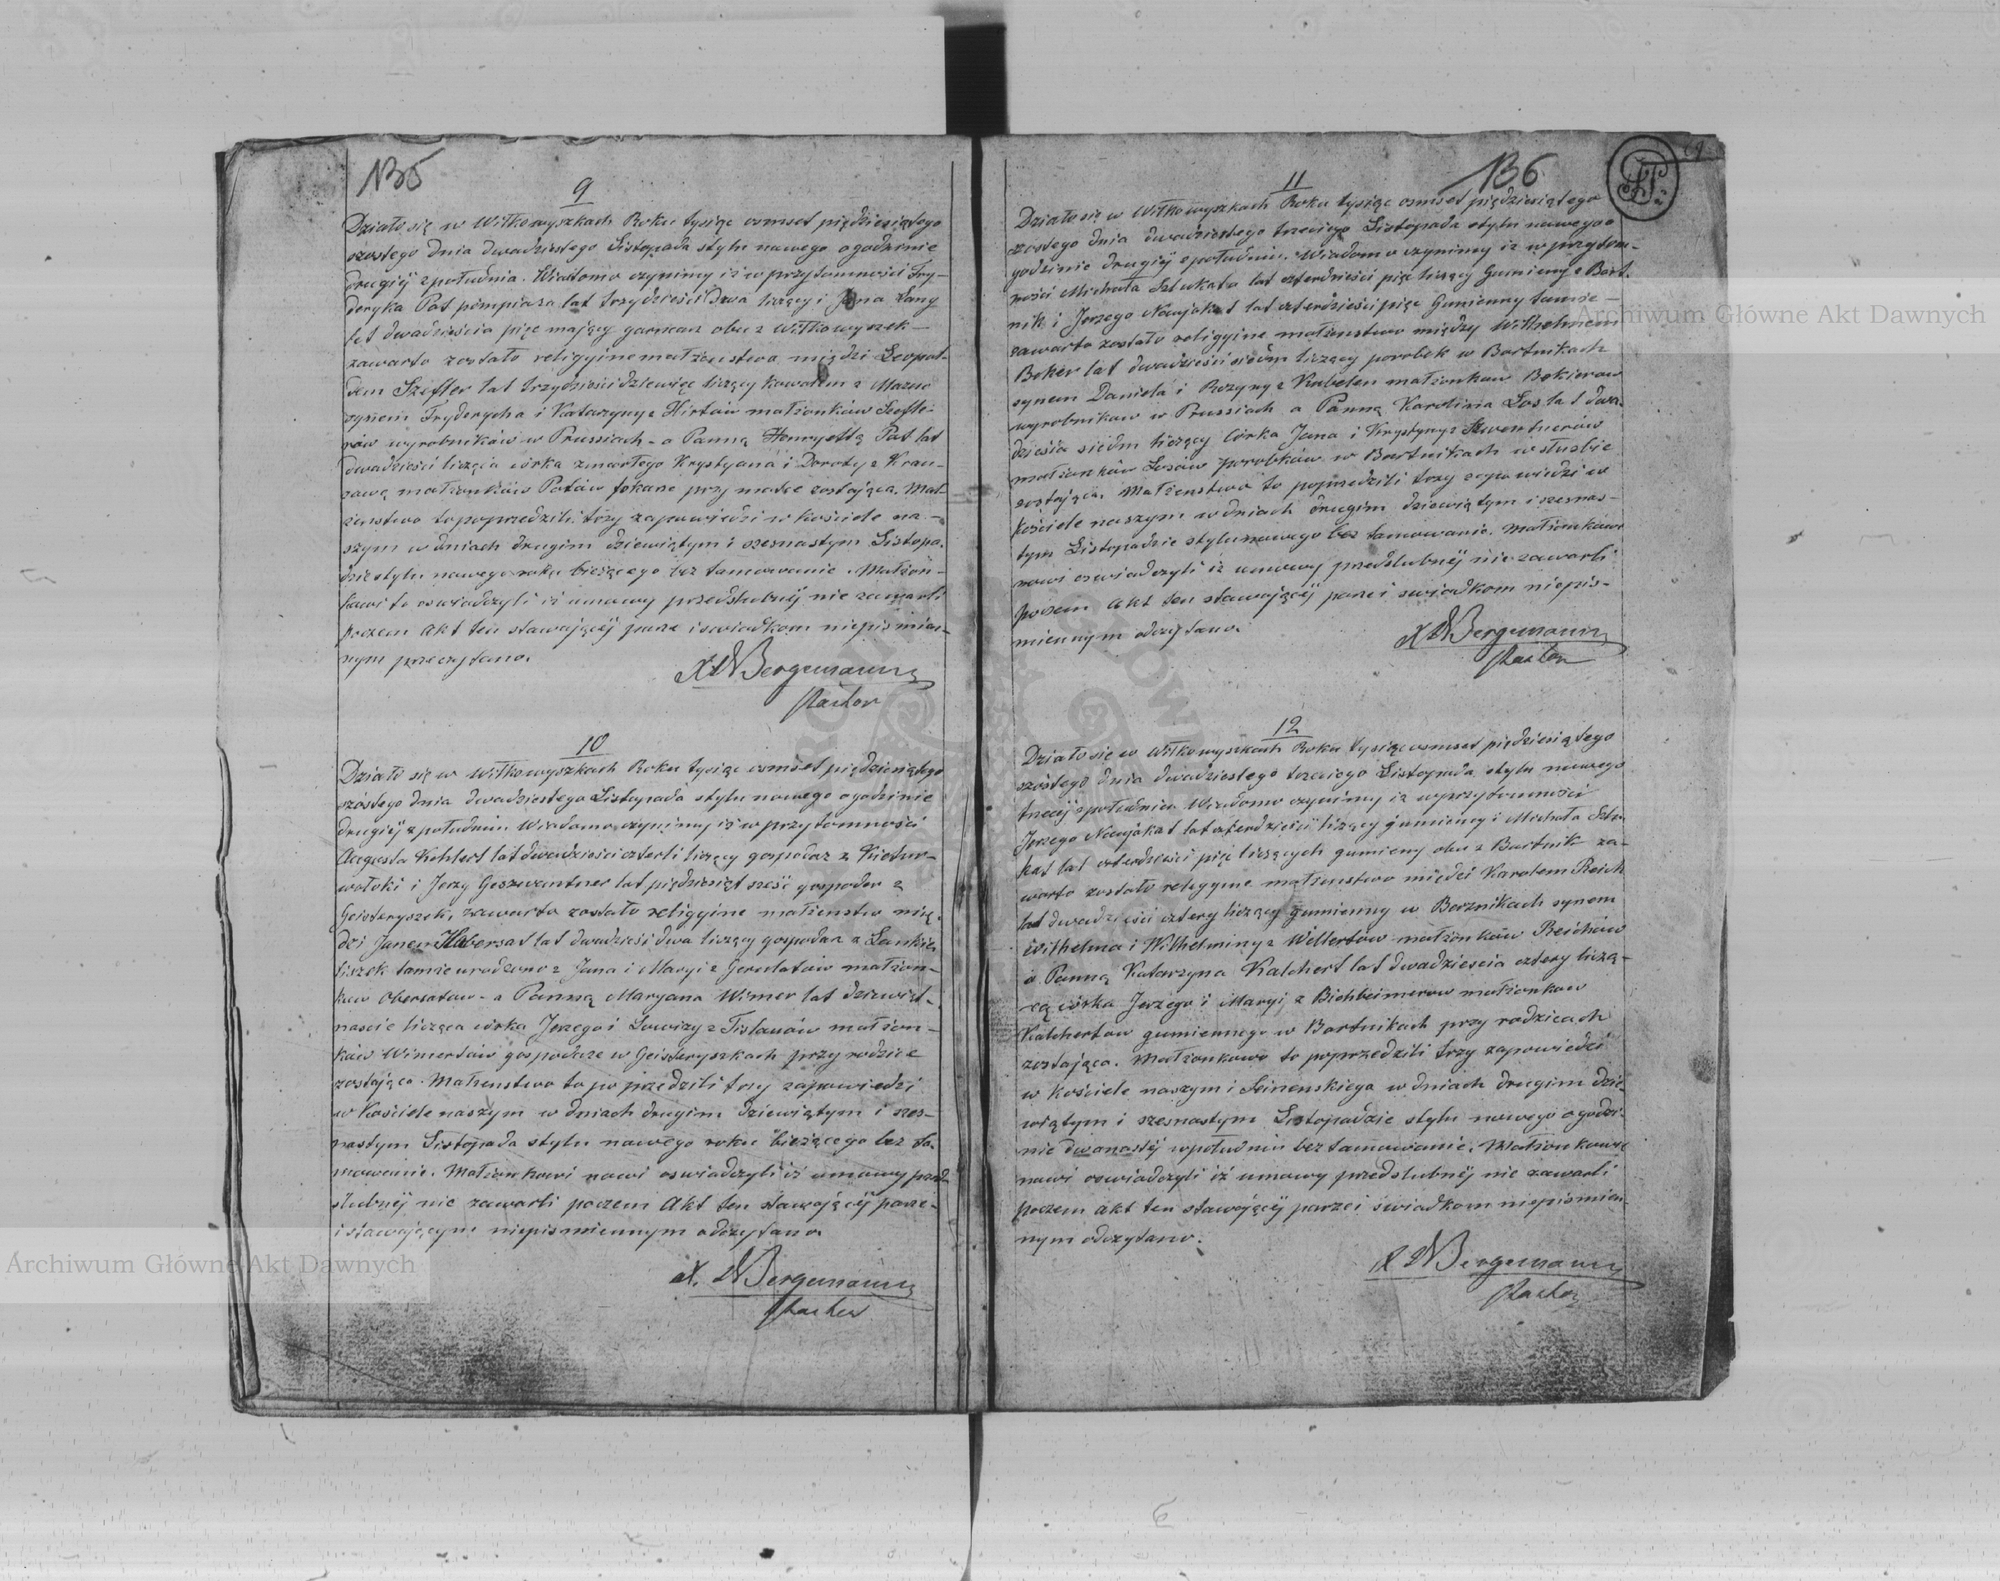 135
9
Działo się w Wiłkowyszkach Roku tysiąc osmset pięдziesiątego
szostego dnia dwadziestego Listopada stylu nowego o godzinie
drugiéj z południa. Wiadomo czynimy iż w przytomności Fry-
deryka Pat pompiasza lat trzydzieści dwa liczący i Jana Lang
lat dwadzieścia pięc mający garncarz obu z Wiłkowyszek
zawarto zostało religyine małżenstwo między Leopol-
dem Szefler lat trzydzieści dziewięc liczący kowalem z
synem Fryderycha i Katarzyny z Hirtów małżonków Szefle-
rów wyrobników w Prussiach a Panną Henryettą Pat lat
dwadzieści licząca córka zmarłego Krystyana i Doroty z Krau-
zawą małżonków Patów przy matce zostająca. Mał-
żenstwo to poprzedzili trzy zapowiedzi w kościele na-
szym w dniach drugim dziewiątym i szesnastym Listopa-
dzie stylu nowego roku bieżącego bez tamowanie. Małżon-
kowi to oswiadczyli iż umowy przedslubnéj nie zawarli
poczem Akt ten stawającéj parze i swiadkom niepismien-
nym przeczytano.
Bergemann
Pastor
10
Działo się w Wiłkowyszkach Roku tysiąc osmset pięдziesiątego
szóstego dnia dwadziestego Listopada stylu nowego o godzinie
drugiéj z południu Wiadomo czynimy iż w przytomności
Augusta Kohlert lat dwadzieści czterli liczący gospodarz z
wołoki i Jerzy Geszwentner lat pięдziesiąt sześć gospodar z
Geisteryszek, zawarto zostało religyine małżenstwo mię-
dzi Janem Habersat lat dwadzieści dwa liczący gospodarz z
tamże urodzono z Jana i Maryi z małżon-
kow Obersatow a Panną Maryana Wimer lat dziewięt-
nascie licząca córka Jerzego i Lowizy z Tislauów małżon-
ków Wimertów gospodarze w Geisteryszkach przy rodzice
zostająca. Małżenstwo to poprzedzili trzy zapowiedzi
w Kościele naszym w dniach drugim dziewiątym i szes-
nastym Listopada stylu nowego roku bieżącego bez ta-
mowanie. Małżonkowi nowi oswiadczyli iż umowy przed-
slubnéj nie zawarli poczem Akt ten stawającéj parze
i stawającym niepismiennym odczytano
Bergemann
Pastor
136
11
Działo się w Wiłkowyszkach Roku tysiąc osmset pięдziesiątego
szostego dnia dwadziestego trzeciego Listopada stylu nowego o
godzinie drugiéj z południu. Wiadomo czynimy iż w przytom-
ności Michała Sztukata lat czterdzieści pięc liczący Gumieny z Bart-
nik i Jerzego Nowjokat lat czterdzieści pięc Gumienny tamże
zawarto zostało religyine małżenstwo między Wilhelmem
Beker lat dwadzieści siedm liczący porobek w Bartnikach
synem Daniela i Rozyny z Kubelen małżonkow Bekierow
wyrobnikow w Prussiach a Panną Karolina Los lat dwa-
dzieścia siedm liczący córka Jana i Krystyny z
małżonków Losów porobków w Bartnikach w służbie
zostająca. Małżenstwo to poprzedzili trzy zapowiedzi w
kościele naszym w dniach drugim dziewiątym i szesnas-
tym Listopadzie stylu nowego bez tamowanie. Małżonkowi
nowi oswiadczyli iż umowy przedslubnéj nie zawarli
poczem Akt ten stawającéj parze i swiadkom niepis-
miennym odczytano.
Bergemann
Pastor
12
Działo się w Wiłkowyszkach Roku tysiąc osmset pięдziesiątego
szóstego dnia dwadziestego trzeciego Listopada stylu nowego
trzeciéj z południu Wiadomo czynimy iż w przytomności
Jerzego Nowjokat lat czterdzieści liczący gumieny i Michała Sztu-
kat lat czterdzieści pięc liczących gumieny obu z Bartnik za-
warto zostało religyine małżenstwo między Karolem Reich
lat dwadzieści cztery liczący gumienny w synem
Wilhelma i Wilhelminy z Wellertow małżonków Reichów
a Panną Katarzyna Kalchert lat dwadziescia cztery liczą-
cą córka Jerzego i Maryi z małżonkow
Kalchertow gumiennego w Bartnikach przy rodzicach
zostająca. Małżonkowo to poprzedzili trzy zapowiedzi
w Kościele naszym i Seinenskiego w dniach drugim dzie-
wiątym i szesnastym Listopadzie stylu nowego o godzi-
nie dwonastéj w południu bez tamowanie. Małżonkowie
nowi oswiadczyli iż umowy przedslubnéj nie zawarli
poczem Akt ten stawającéj parze i świadkom niepismien-
nym odczytano.
Bergemann
Pastor
Archiwum Główne Akt Dawnych
Archiwum Główne Akt Dawnych